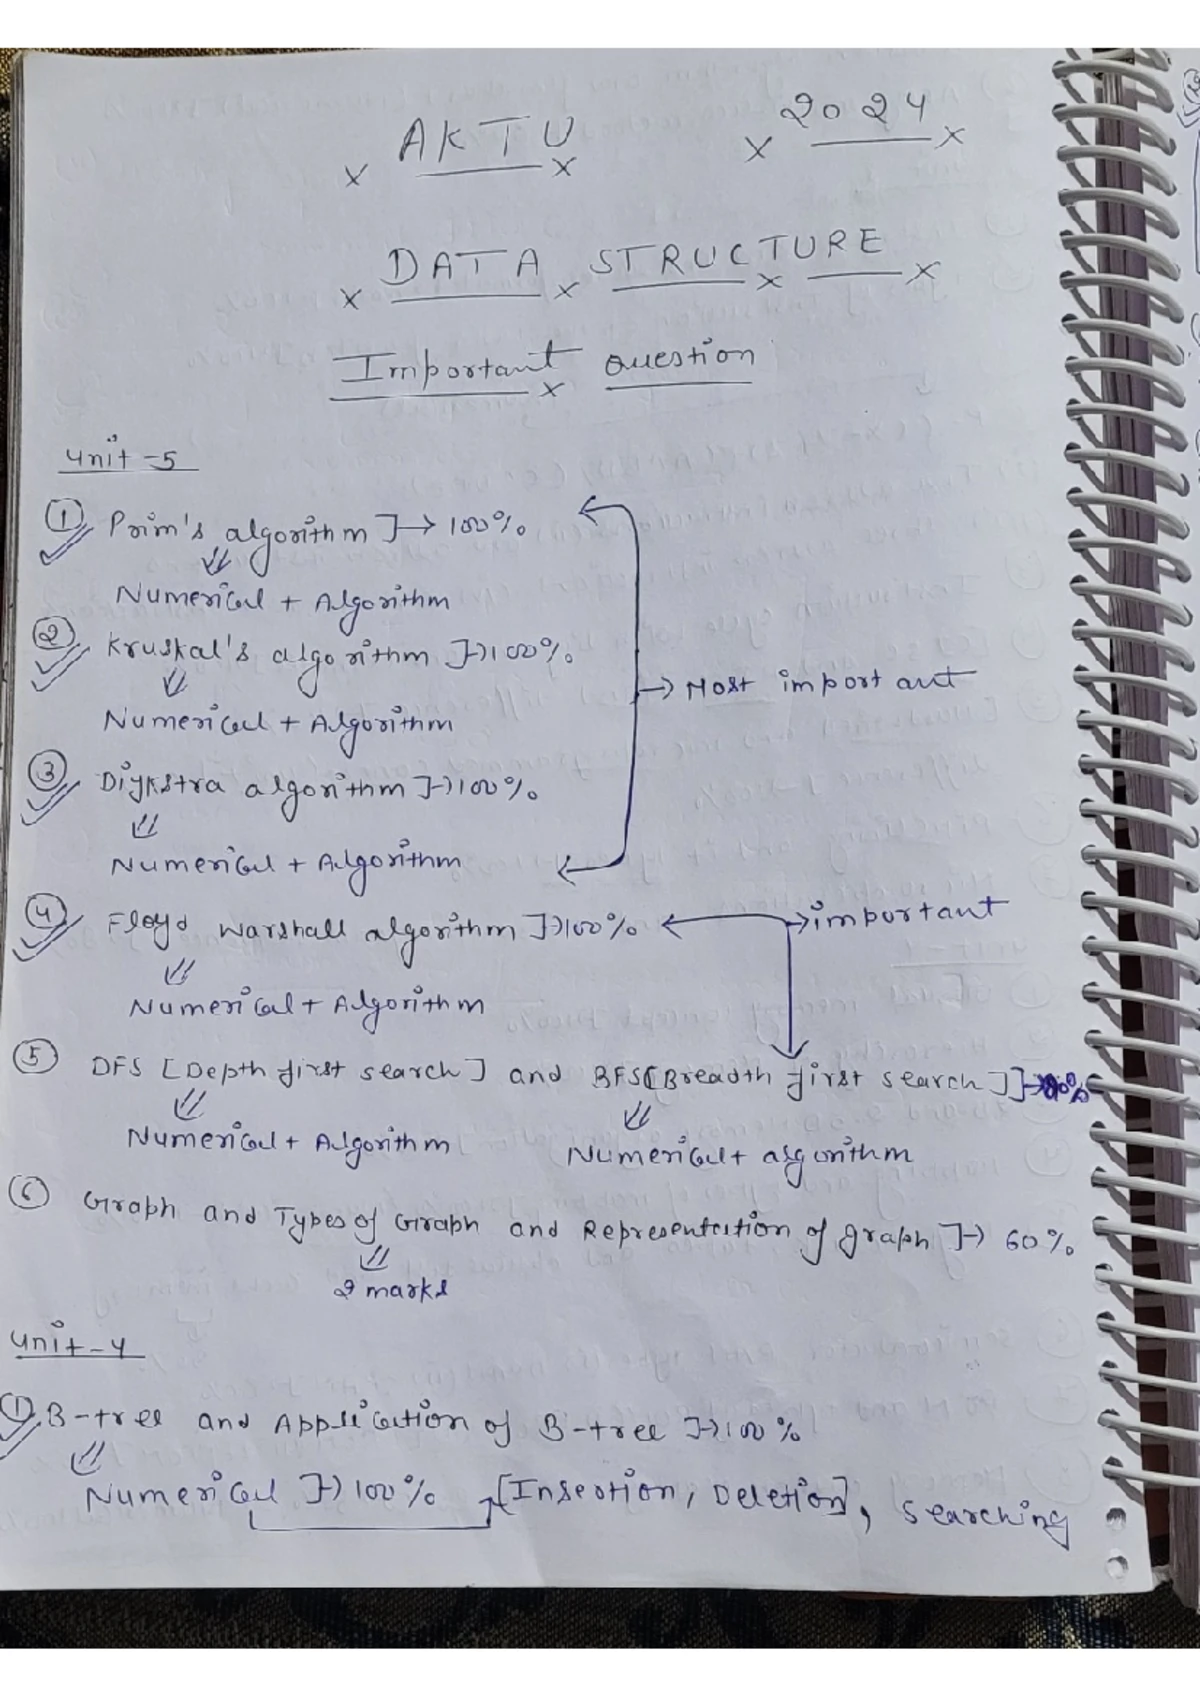 AKTU 2024
DATA STRUCTURE
Important Question
Unit-5
① Prim's algorithm ]→ 100%
Numerical + Algorithm
② Kruskal's algorithm ]→100%
Numerical + Algorithm
→ Most important
③ Dijkstra algorithm ]→100%
Numerical + Algorithm
④ Floyd Warshall algorithm ]→100% →important
Numerical + Algorithm
⑤ DFS [Depth first search] and BFS[Breadth first search]]→
Numerical + Algorithm Numerical + algorithm
⑥ Graph and Types of Graph and Representation of graph ]→ 60%
2 marks
Unit-4
① B-tree and Application of B-tree ]→100%
Numerical ]→100% [Insertion, Deletion], Searching